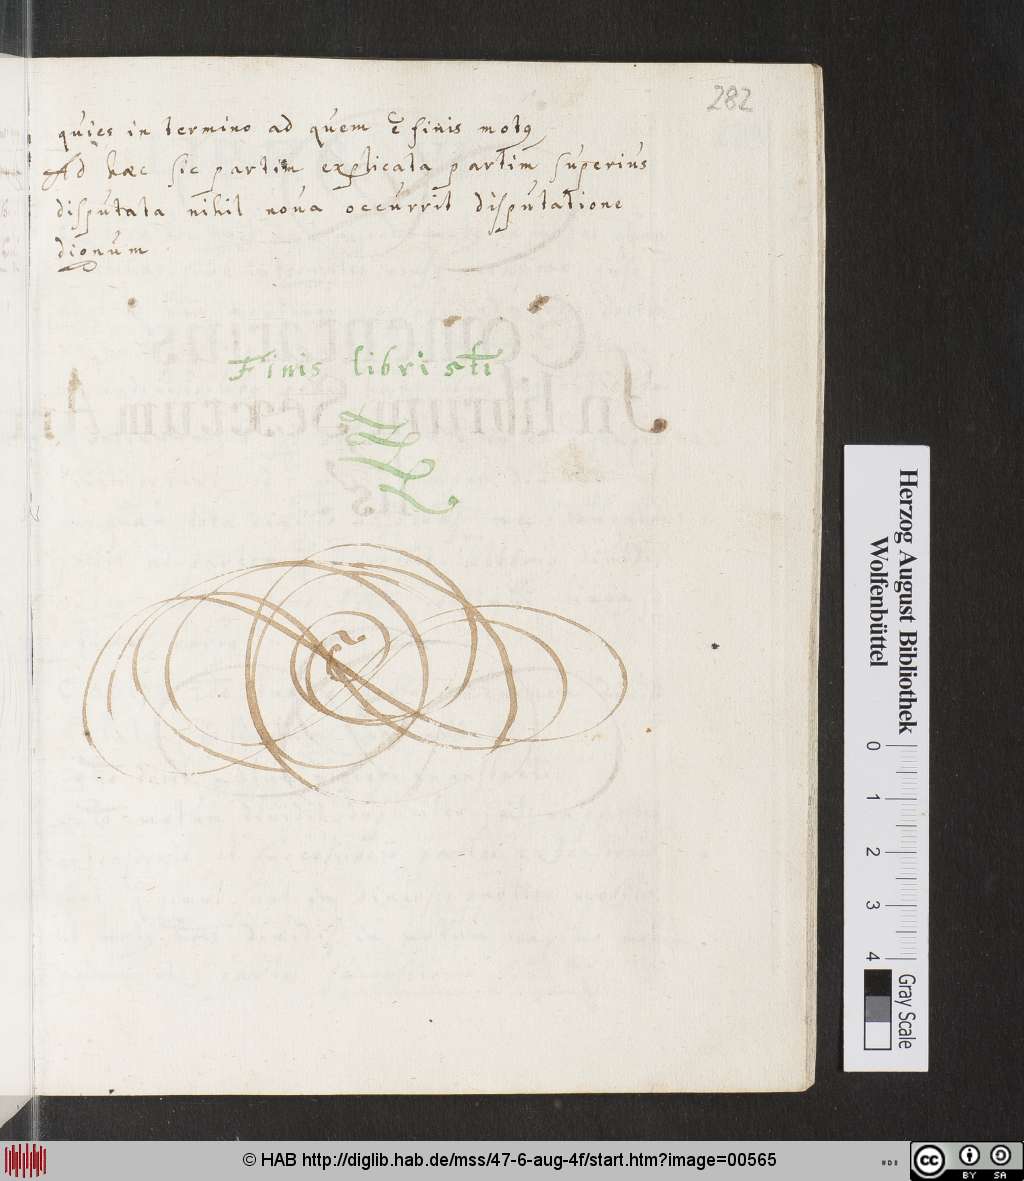 282
quies in termino ad quem ē finis motꝰ
Ad haec sic partim explicata partim superius
disputata nihil noua occurrit disputatione
dignum
Finis libri 5ti
Herzog August Bibliothek
Wolfenbüttel
0 1 2 3 4
Gray Scale
© HAB http://diglib.hab.de/mss/47-6-aug-4f/start.htm?image=00565
cc BY SA